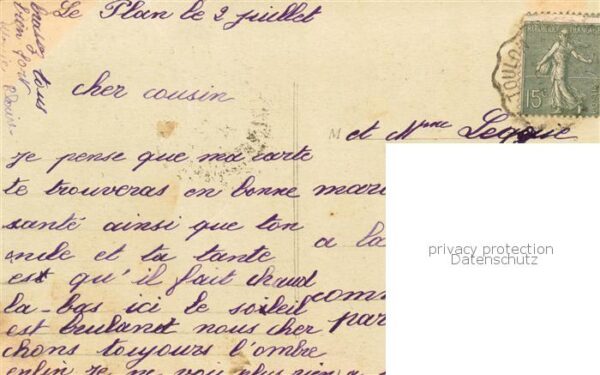 Le Plan le 2 juillet
baisez tous
bien fort
cher cousin
Je pense que ma carte
te trouveras en bonne
santé ainsi que ton
oncle et ta tante
est qu'il fait chaud
la-bas ici le soleil
est brulant nous cher
chons toujours l'ombre
enfin je ne vois plus rien a
M et Mme
a la
REPUBLIQUE FRANÇAISE
15c
TOULON
privacy protection
Datenschutz